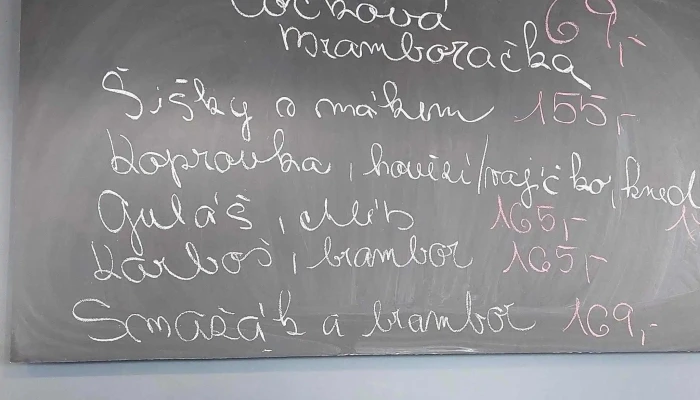 Čočková 69,-
Bramboračka
Šišky s mákem 155,-
Koprovka, hovězí/vajíčko, kned
Guláš, chléb 165,-
Karboš, brambor 165,-
Smažák a brambor 169,-